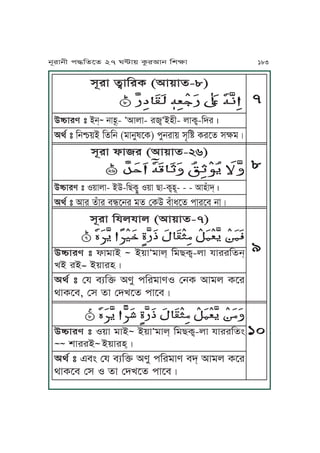 নূরানী পদ্ধতিতে ২৭ ঘন্টায় কুরআন শিক্ষা ১৮৩
সূরা ত্বারিক (আয়াত-৮)
اِنَّهٗ عَلٰى رَجْعِهٖ لَقَادِرٌ ۞ ৭
উচ্চারণ ঃ ইন্~ নাহূ- 'আলা- রজ্'ইহী- লাক্ব-দির।
অর্থ ঃ নিশ্চয়ই তিনি (মানুষকে) পুনরায় সৃষ্টি করতে সক্ষম।
সূরা ফাজর (আয়াত-২৬)
وَّلَا يُوْثِقُ وَثَاقَهٗۤ اَحَدٌ ۞ ৮
উচ্চারণ ঃ ওয়ালা- ইউ-ছিক্বু ওয়া ছা-ক্বহূ- - - আহাঁদ্।
অর্থ ঃ আর তাঁর বন্ধনের মত কেউ বাঁধতে পারবে না।
সূরা যিলযাল (আয়াত-৭)
فَمَنْ يَّعْمَلْ مِثْقَالَ ذَرَّةٍ خَيْرًا يَّرَهٗ ۞ ৯
উচ্চারণ ঃ ফামাই ~ ইয়া'মাল্ মিছক্ব-লা যাররতিন্
খই রই~ ইয়ারহ।
অর্থ ঃ যে ব্যক্তি অণু পরিমাণও নেক আমল করে
থাকবে, সে তা দেখতে পাবে।
وَمَنْ يَّعْمَلْ مِثْقَالَ ذَرَّةٍ شَرًّا يَّرَهٗ ۞
উচ্চারণ ঃ ওয়া মাই~ ইয়া'মাল্ মিছক্ব-লা যাররতিং ১০
~~ শাররই~ ইয়ারহ্।
অর্থ ঃ এবং যে ব্যক্তি অণু পরিমাণ বদ্ আমল করে
থাকবে সে ও তা দেখতে পাবে।